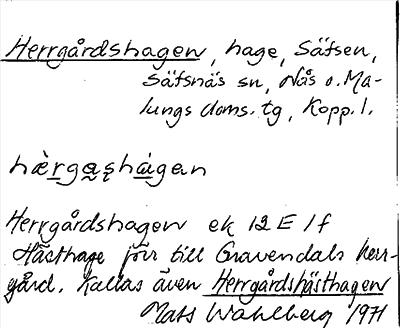 Herrgårdshagen, hage, Säfsen,
Säfsnäs sn, Nås o. Ma-
lungs doms. tg, Kopp. l.
hæ̀rgas̨hàgan
Herrgårdshagen ek 12 E 1f
Hästhage förr till Gravendals herr-
gård. Kallas även Herrgårdshästhagen
Mats Wahlberg 1971